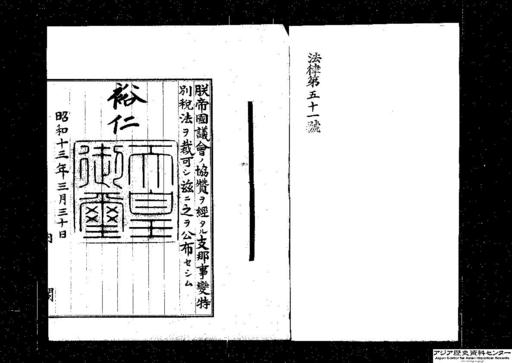 法律第五十一號
朕帝國議會ノ協贊ヲ經タル支那事變特
別税法ヲ裁可シ茲ニ之ヲ公布セシム
裕仁
天皇
御璽
昭和十三年三月三十日
内閣
アジア歴史資料センター
Japan Center for Asian Historical Records